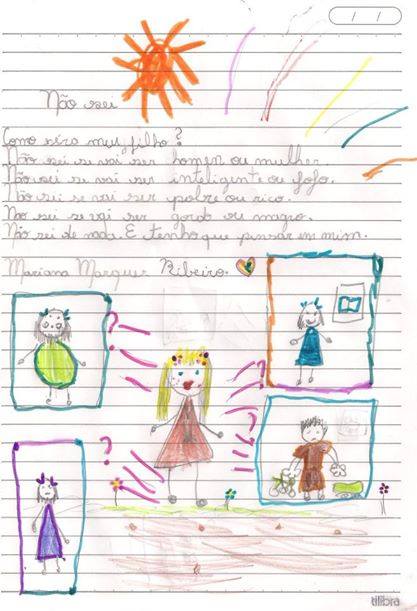 Não sei
Como sera meu filho?
Não sei se vai ser homen ou mulher.
Não sei se vai ser inteligente ou fofo.
Não sei se vai ser pobre ou rico.
Não sei se vai ser gordo ou magro.
Não sei de nada. E tenho que pensar em mim.
Mariana Marques Ribeiro.
tilibra